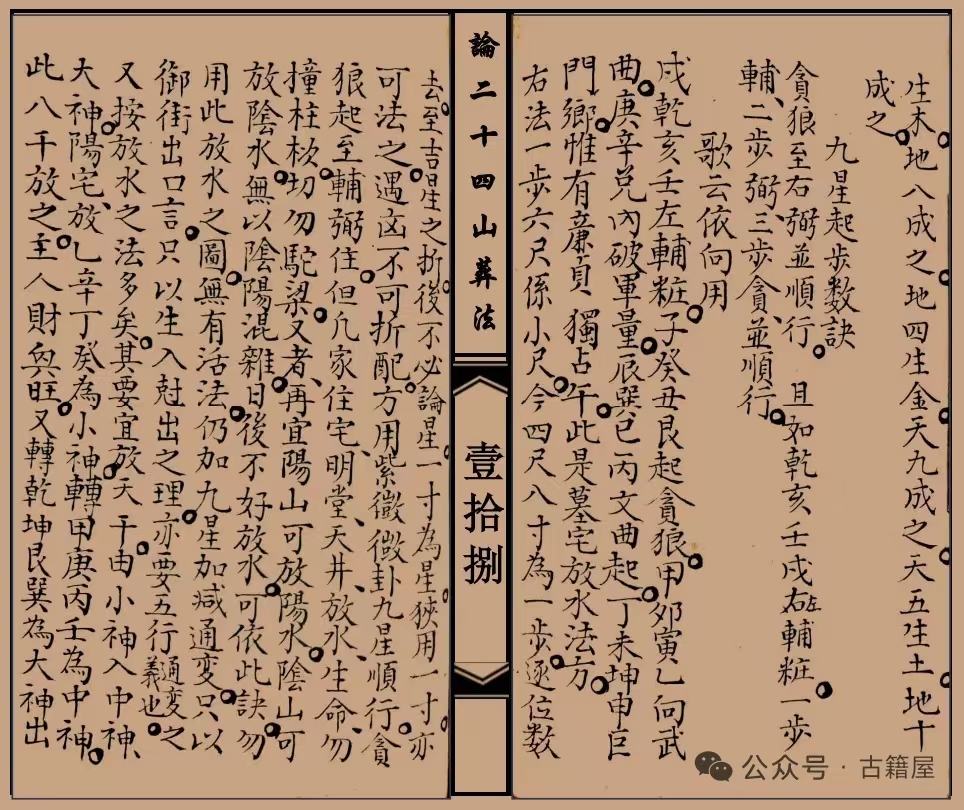 生木地八成之地四生金天九成之天五生土地十
成之
九星起步数訣
貪狼至右弼並順行 且如乾亥壬戌右左輔粧一步
輔二步弼三步貪並順行
歌云依向用
戌乾亥壬左輔粧子癸丑艮起貪狼甲夘寅乙向武
曲庚辛兌內破軍量辰巽巳丙文曲起丁未坤申巨
門鄉惟有廉貞獨占午此是墓宅放水法方
右法一步六尺係小尺今四尺八寸為一步逐位数
論二十四山葬法
壹拾捌
去至吉星之折後不必論星一寸為星狹用一寸亦
可法之遇凶不可折配方用紫微微卦九星順行貪
狼起至輔弼住但凢家住宅明堂天井放水生命勿
撞柱枕切勿駝梁又者再宜陽山可放陽水陰山可
放陰水無以陰陽混雜日後不好放水可依此訣勿
用此放水之圖無有活法仍加九星加减通变只以
御街出口言只以生入尅出之理亦要五行通变之義也
又按放水之法多矣其要宜放天干由小神入中神
大神陽宅放乙辛丁癸為小神轉甲庚丙壬為中神
此八千放之主人財兴旺又轉乾坤艮巽為大神出
公众号·古籍屋